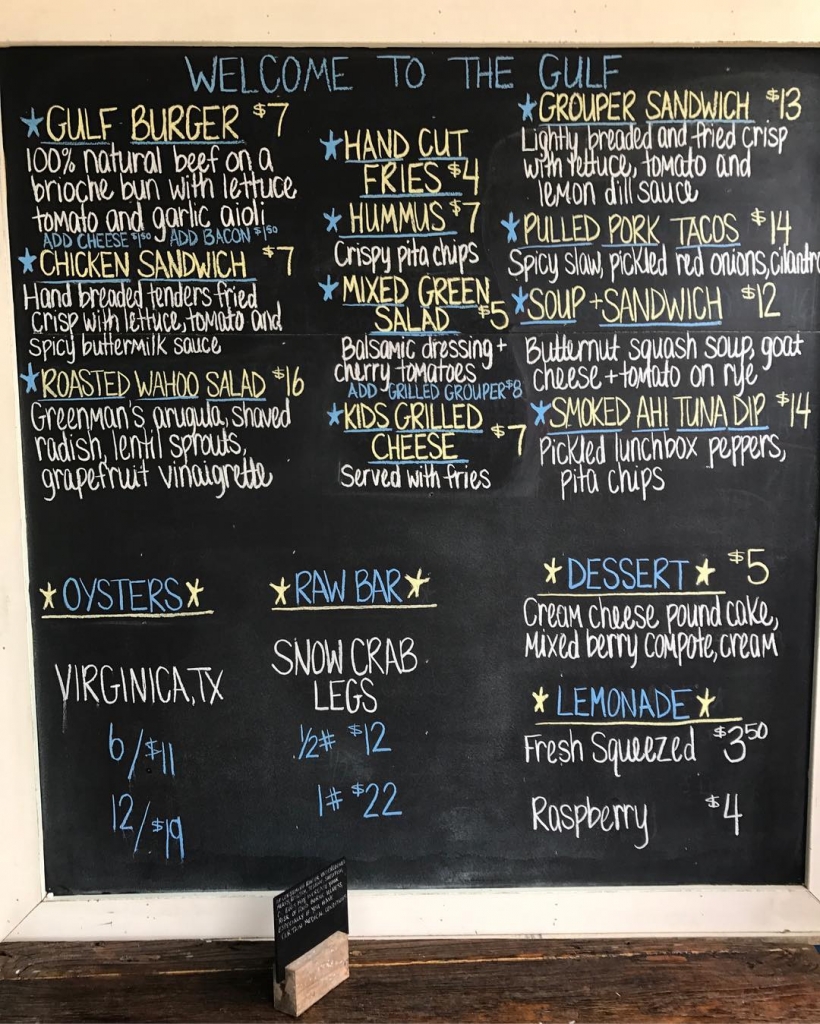 WELCOME TO THE GULF
★GULF BURGER $7
100% natural beef on a
brioche bun with lettuce
tomato and garlic aioli
ADD CHEESE $1.50 ADD BACON $1.50
★CHICKEN SANDWICH $7
Hand breaded tenders fried
crisp with lettuce, tomato and
spicy buttermilk sauce
★ROASTED WAHOO SALAD $16
Greenman's arugula, shaved
radish, lentil sprouts,
grapefruit vinaigrette
★HAND CUT
FRIES $4
★HUMMUS $7
Crispy pita chips
★MIXED GREEN
SALAD $5
Balsamic dressing +
cherry tomatoes
ADD GRILLED GROUPER $8
★KIDS GRILLED
CHEESE $7
Served with fries
★GROUPER SANDWICH $13
Lightly breaded and fried crisp
with lettuce, tomato and
lemon dill sauce
★PULLED PORK TACOS $14
Spicy slaw, pickled red onions, cilantro
★SOUP + SANDWICH $12
Butternut squash soup, goat
cheese + tomato on rye
★SMOKED AHI TUNA DIP $14
Pickled lunchbox peppers,
pita chips
★OYSTERS★
VIRGINICA, TX
6/$11
12/$19
★RAW BAR★
SNOW CRAB
LEGS
1/2# $12
1# $22
★DESSERT★ $5
Cream cheese pound cake,
mixed berry compote, cream
★LEMONADE★
Fresh Squeezed $3.50
Raspberry $4